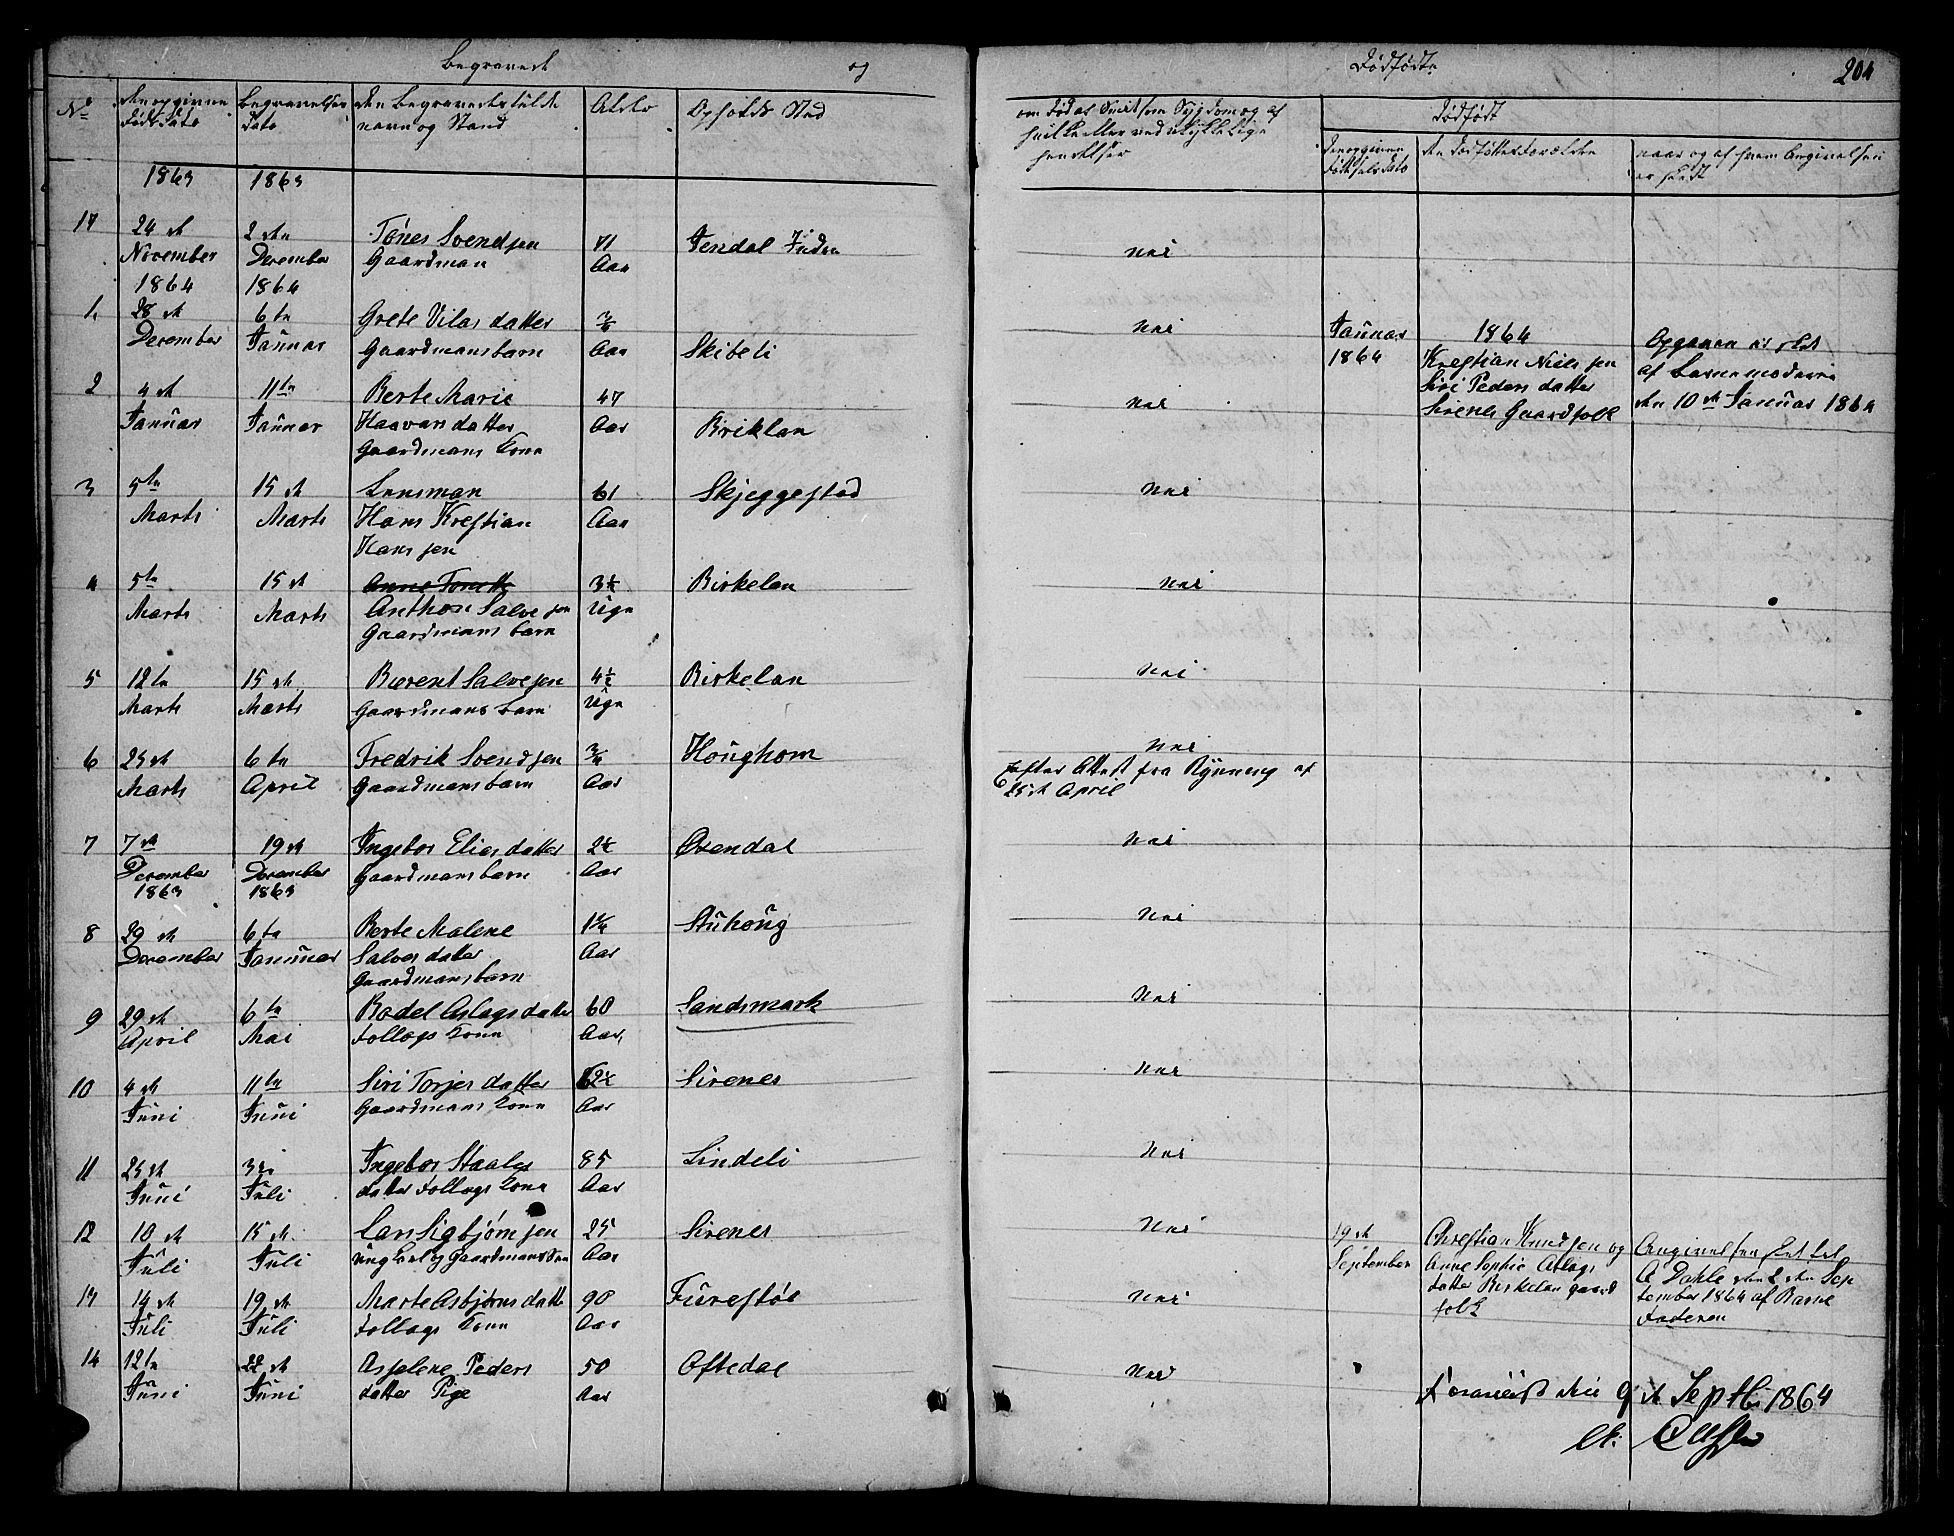 Begravede og Dødfødte 204
No
den opgivne Døds Dato
Begravelses Dato
den Begravedes fulde navn og Stand
Alder
Opholds Sted
om død af Smitsom Sygdom og af hvilke eller ved ulykkelige hendelser
Dødfødt
den opgivne Dødfødsels Dato
den dødføttes Forældre
naar og af hvem Angivelsen er skedt
1863 1863
17 24de November 2den December Tønes Svendsen Gaardman 71 Aar Fendal Indre Nei
1864 1864
1 28de December 6te Januar Grete Vilas datter Gaardmansbarn Aar Skibeli Nei
Januar 1864
1864
Krestian Nielsen
Siri Peders datter
Sirenes Gaardfolk
Opgaven er sket
af Barnemoderen
den 10de Januar 1864
2 4de Januar 11te Januar Berte Marie Haavardatter Gaardmans Kone 47 Aar Briklan Nei
3 5te Marts 15de Marts Lensman Hans Krestian Hansen 61 Aar Skjeggestad Nei
4 5te Marts 15de Marts Anthon Salvesen Gaardmans barn 3½ Uge Birkelan Nei
5 12te Marts 15de Marts Bærent Salvesen Gaardmans barn 4½ Uge Birkelan Nei
6 25de Marts 6te April Fredrik Svendsen Gaardmans barn ¾ Aar Houghom Nei
Efter Attest fra Rynning af
25de April
7 7de December 1863 19de December 1863 Ingebor Elias datter Gaardmansbarn 2½ Aar Øvendal Nei
8 29de December 6te Januar Berte Malene Salves datter Gaardmansbarn 1¼ Aar Stuhoug Nei
9 29de April 6te Mai Bodel Aslags datter Follogs Kone 60 Aar Sandsmark Nei
10 4de Juni 11te Juni Siri Torjes datter Gaardmans Kone 62½ Aar Sirenes Nei
11 25de Juni 3die Juli Ingebor Staales datter Follogs Kone 85 Aar Lindeli Nei
12 10de Juli 15de Juli Lars Sigbjørnsen ungkarl og Gaardmanssøn 25 Aar Sirenes Nei
19de September
Chrestian Knudsen og
Anne Sophie Atlags
datter Birkelan gaard
folk
Angivelsen sket til
A Dahle den 2den Sep
tember 1864 af Barne
Faderen
13 14de Juli 19de Juli Marte Asbjørns datter Follogs Kone 90 Aar Furestøl Nei
14 12te Juni 22de Juni Asjelene Peders datter Pige 50 Aar Oftedal Nei
den 9de Septbr 1864